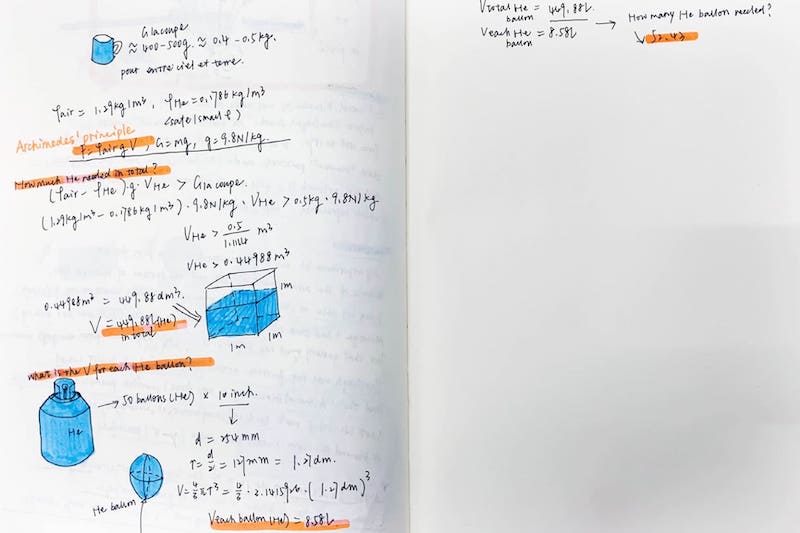 G la coupe
≈ 400-500g. ≈ 0.4 - 0.5kg.
pour entre ciel et terre.
ρair = 1.29kg/m³, ρHe = 0.1786kg/m³
Archimedes' principle
F = ρair g V, G = mg, g = 9.8N/kg.
How much He needed in total?
(ρair - ρHe) . g . VHe > G la coupe.
(1.29kg/m³ - 0.1786kg/m³) . 9.8N/kg . VHe > 0.5kg . 9.8N/kg
VHe > 0.5/1.1114 m³
VHe > 0.44988m³
0.44988m³ = 449.88dm³.
V = 449.88L(He)
in total
1m
1m
1m
what is the V for each He ballon?
He
→ 50 ballons (He) × 10 inch.
d = 254mm
r = d/2 = 127mm = 1.27dm.
He ballon
V each ballon (He) = 8.58L
Vtotal He = 449.88L
ballon
Veach He = 8.58L
ballon
→ How many He ballon needed?
52.43